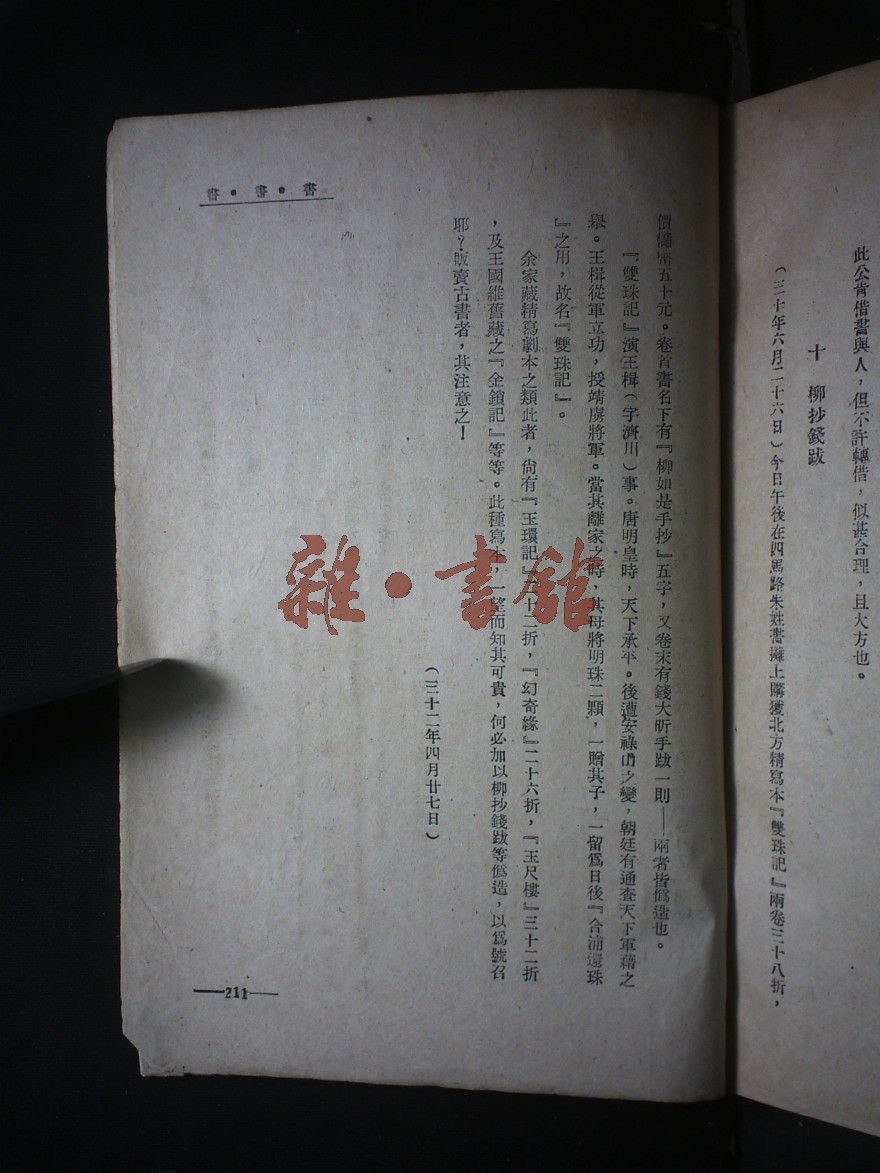 此公肯借書與人，但不許轉借，似甚合理，且大方也。
十　柳抄錢跋
（三十年六月二十六日）今日午後在四馬路朱姓書攤上購獲北方精寫本『雙珠記』兩卷三十八折，
價儲幣五十元。卷首書名下有『柳如是手抄』五字，又卷末有錢大昕手跋一則——兩者皆僞造也。
『雙珠記』演王楫（字濟川）事。唐明皇時，天下承平。後遭安祿山之變，朝廷有通查天下軍藉之
舉。王楫從軍立功，授靖虜將軍。當其離家之時，其母將明珠二顆，一贈其子，一留爲日後『合浦還珠
』之用，故名『雙珠記』。
余家藏精寫劇本之類此者，尙有『玉環記』三十二折，『幻奇緣』二十六折，『玉尺樓』三十二折
，及王國維舊藏之『金鎖記』等等。此種寫本，一望而知其可貴，何必加以柳抄錢跋等僞造，以爲號召
耶？販賣古書者，其注意之！
（三十二年四月廿七日）
書•書•書
—211—
雜•書館